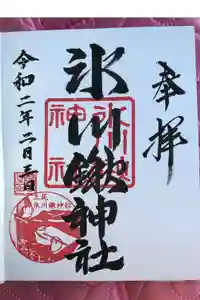 奉拝
氷川鍬神社
氷川鍬神社
令和二年二月三日
上尾
氷川鍬神社